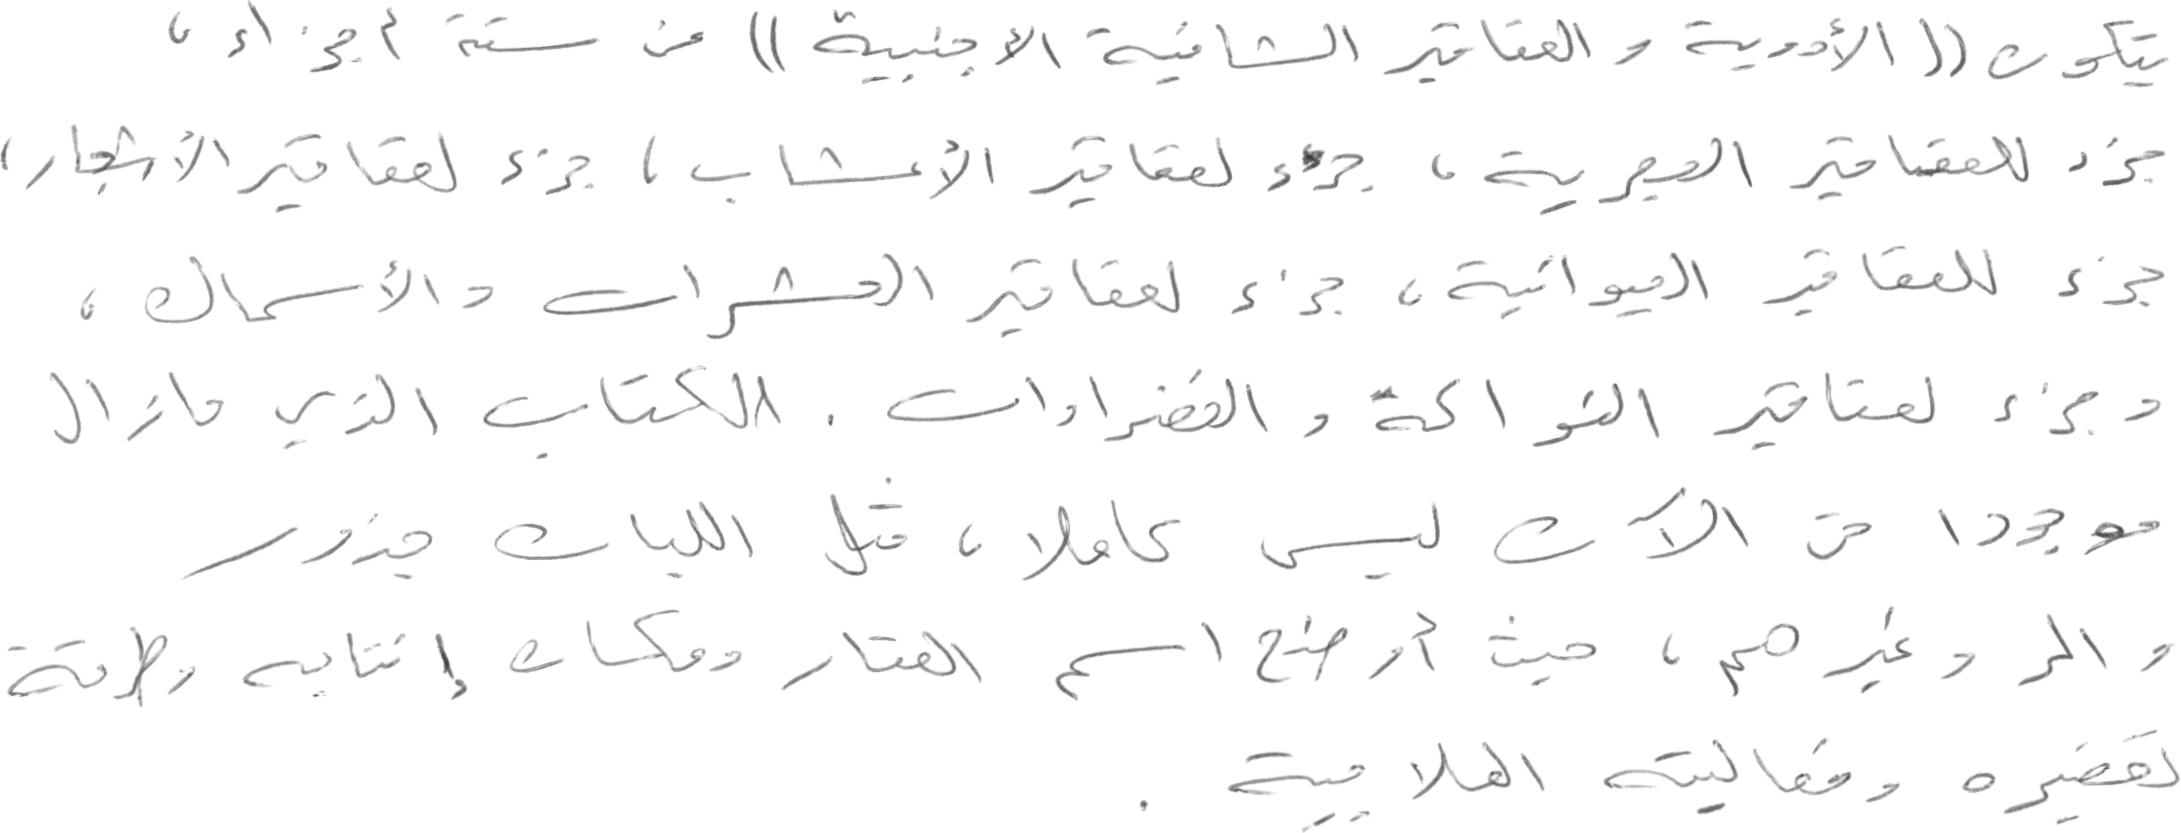 يتكون ((الأدوية و العقاقير الشافية الاجنبية)) من ستة أجزاء ،
جزء للعقاقير الحجرية ، جزء لعقاقير الأعشاب ، جزء لعقاقير الأشجار ،
جزء للعقاقير الحيوانية ، جزء لعقاقير الحشرات والأسماك ،
و جزء لعقاقير الفواكة و الخضراوات . الكتاب الذي مازال
موجودا من الآن ليس كاملا ، مثل اللبان جذور
و المر و غيرهم ، حيث أوضح اسم العقار ومكان إنتاجه وطريقة
تحضيره وفعاليته العلاجية .